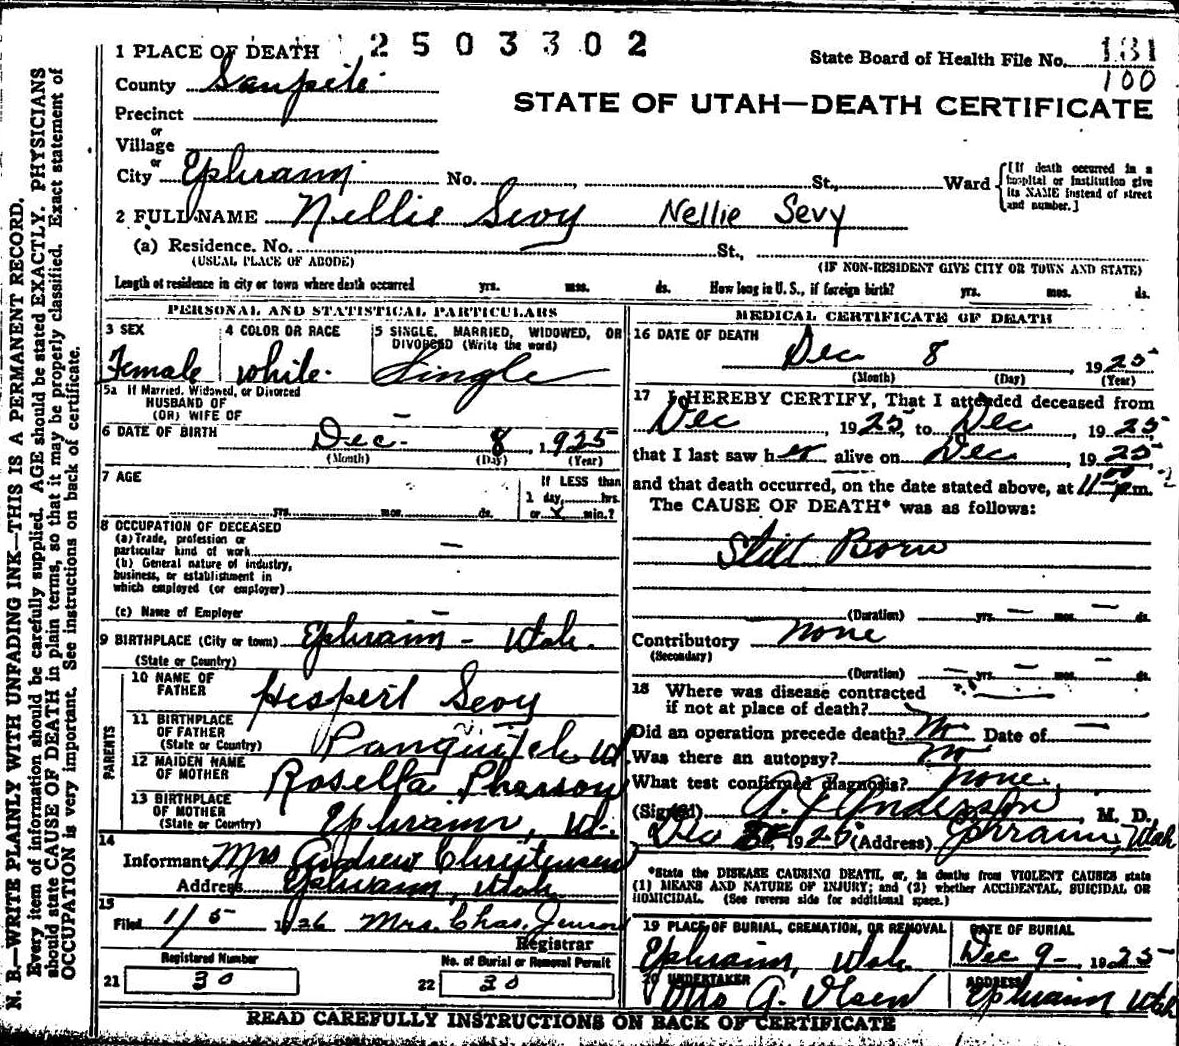 1 PLACE OF DEATH 2503302
State Board of Health File No. 131
100
County Sanpete
STATE OF UTAH—DEATH CERTIFICATE
Precinct
or
Village
or
City Ephraim No. , St., Ward {[If death occurred in a hospital or institution give its NAME instead of street and number.]
2 FULL NAME Nellie Sevy Nellie Sevy
(a) Residence. No. St.,
(USUAL PLACE OF ABODE) (IF NON-RESIDENT GIVE CITY OR TOWN AND STATE)
Length of residence in city or town where death occurred yrs. mos. ds. How long in U. S., if foreign birth? yrs. mos. ds.
PERSONAL AND STATISTICAL PARTICULARS
3 SEX
Female
4 COLOR OR RACE
White.
5 SINGLE, MARRIED, WIDOWED, OR
DIVORCED (Write the word)
Single
5a If Married, Widowed, or Divorced
HUSBAND OF
(OR) WIFE OF —
6 DATE OF BIRTH Dec. 8, 1925
(Month) (Day) (Year)
7 AGE
yrs. mos. ds.
If LESS than
1 day, hrs.
or X min.?
8 OCCUPATION OF DECEASED
(a) Trade, profession or
particular kind of work —
(b) General nature of industry,
business, or establishment in
which employed (or employer)
(c) Name of Employer —
9 BIRTHPLACE (City or town) Ephraim - Utah.
(State or Country)
PARENTS
10 NAME OF
FATHER Hespert Sevy
11 BIRTHPLACE
OF FATHER
(State or Country) Panguitch Ut
12 MAIDEN NAME
OF MOTHER Rosella Pherson
13 BIRTHPLACE
OF MOTHER
(State or Country) Ephraim, Ut.
14
Informant Mrs Andrew Christensen
Address Ephraim, Utah
15
Filed 1/5 1926 Mrs. Chas. Jensen
Registrar
Registered Number
21 30
No. of Burial or Removal Permit
22 30
MEDICAL CERTIFICATE OF DEATH
16 DATE OF DEATH
Dec 8 1925
(Month) (Day) (Year)
17 I HEREBY CERTIFY, That I attended deceased from
Dec , 1925, to Dec , 1925
that I last saw her alive on Dec , 1925,
and that death occurred, on the date stated above, at 11 00 p.m.
The CAUSE OF DEATH* was as follows:
Still Born
(Duration) yrs. — mos. — ds.
Contributory None
(Secondary)
(Duration) — yrs. — mos. — ds.
18 Where was disease contracted
if not at place of death?
Did an operation precede death? No Date of —
Was there an autopsy? No
What test confirmed diagnosis? None.
(Signed) A. J. Anderson, M. D.,
Dec 8, 1925 (Address) Ephraim, Utah
*State the DISEASE CAUSING DEATH, or, in deaths from VIOLENT CAUSES state
(1) MEANS AND NATURE OF INJURY; and (2) whether ACCIDENTAL, SUICIDAL OR
HOMICIDAL. (See reverse side for additional space.)
19 PLACE OF BURIAL, CREMATION, OR REMOVAL
Ephraim, Utah.
DATE OF BURIAL
Dec 9 - 1925
20 UNDERTAKER
Otto A. Olsen
ADDRESS
Ephraim Utah
READ CAREFULLY INSTRUCTIONS ON BACK OF CERTIFICATE
N. B.—WRITE PLAINLY WITH UNFADING INK—THIS IS A PERMANENT RECORD.
Every item of information should be carefully supplied. AGE should be stated EXACTLY. PHYSICIANS
should state CAUSE OF DEATH in plain terms, so that it may be properly classified. Exact statement of
OCCUPATION is very important. See instructions on back of certificate.